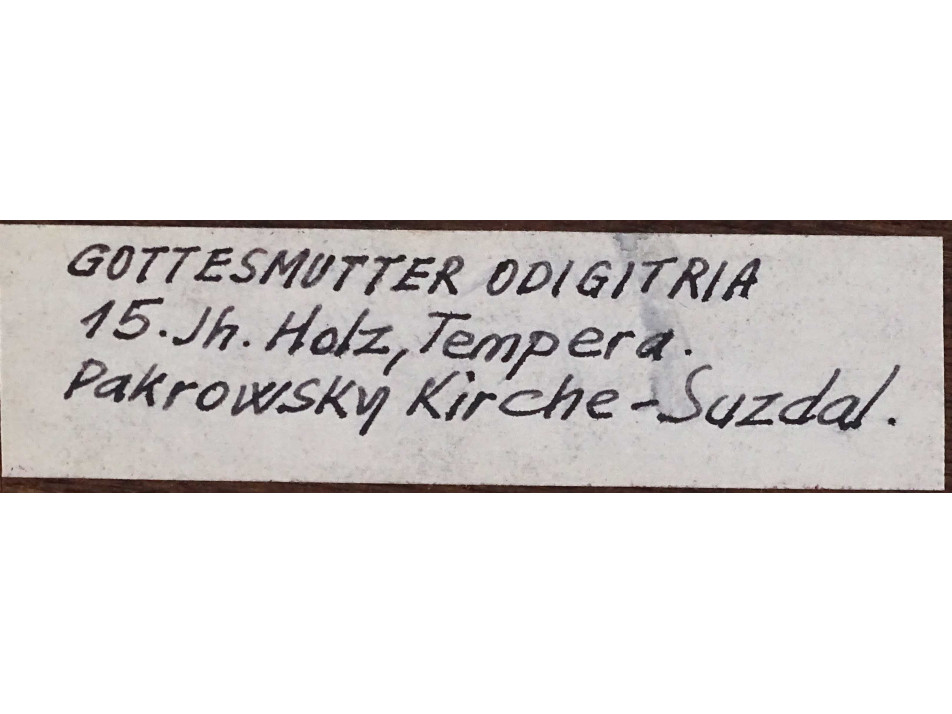 GOTTESMUTTER ODIGITRIA
15. Jh. Holz, Tempera.
Pakrowsky Kirche - Suzdal.